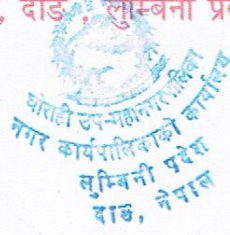 , दाङ , लुम्बिनी प्र
घोराही उप-महानगरपालिका
नगर कार्यपालिकाको कार्यालय
लुम्बिनी प्रदेश
दाङ, नेपाल